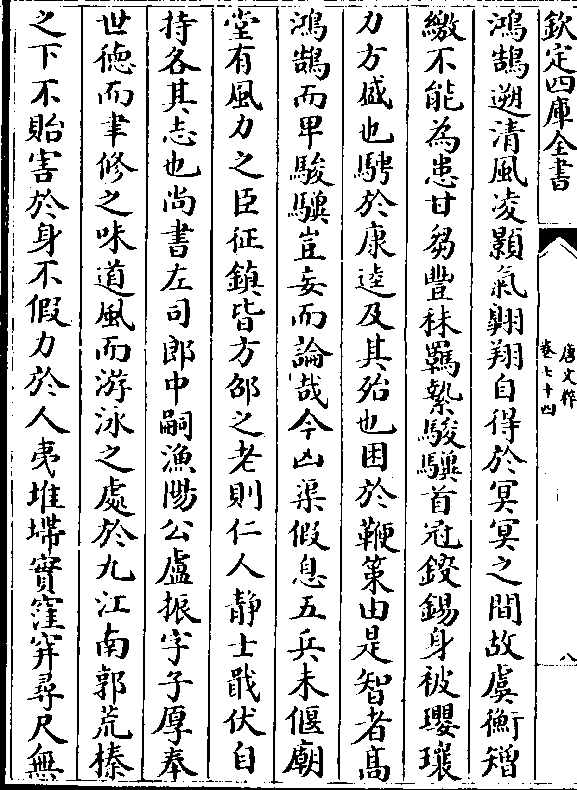 欽定四庫全書
唐文粹
卷七十四
八
鴻鵠遡清風凌顥氣翺翔自得於冥冥之間故虞衡矰
繳不能為患甘芻豐秣羈縶駿驥首冠鍐鍚身被瓔瓌
力方搣也騁於康逵及其殆也困於鞭策由是智者髙
鴻鵠而卑駿驥豈妄而論哉今凶渠假息五兵未偃廟
堂有風力之臣征鎮皆方邵之老則仁人静士戢伏自
持各其志也尚書左司郎中嗣漁陽公盧振字子厚奉
世德而聿修之味道風而游泳之處於九江南郭荒榛
之下不貽害於身不假力於人夷堆㙞實窪穽尋尺無